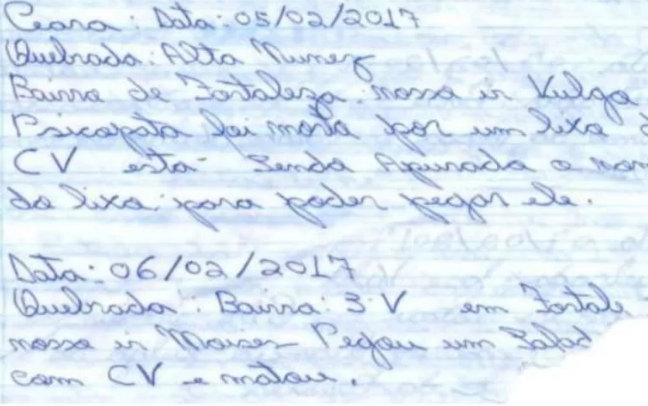 Ceara: Data: 05/02/2017
Quebrada: Alto Nunez
Bairro de Fortaleza. nosso ir Vulgo
Psicopata foi morto por um lixo d
CV está Sendo Apurado o nom
do lixo. para poder pegar ele.
Data: 06/02/2017
Quebrada: Bairro: 3 V em Fortale
nosso ir Moises Pegou um Safad
com CV e matou.